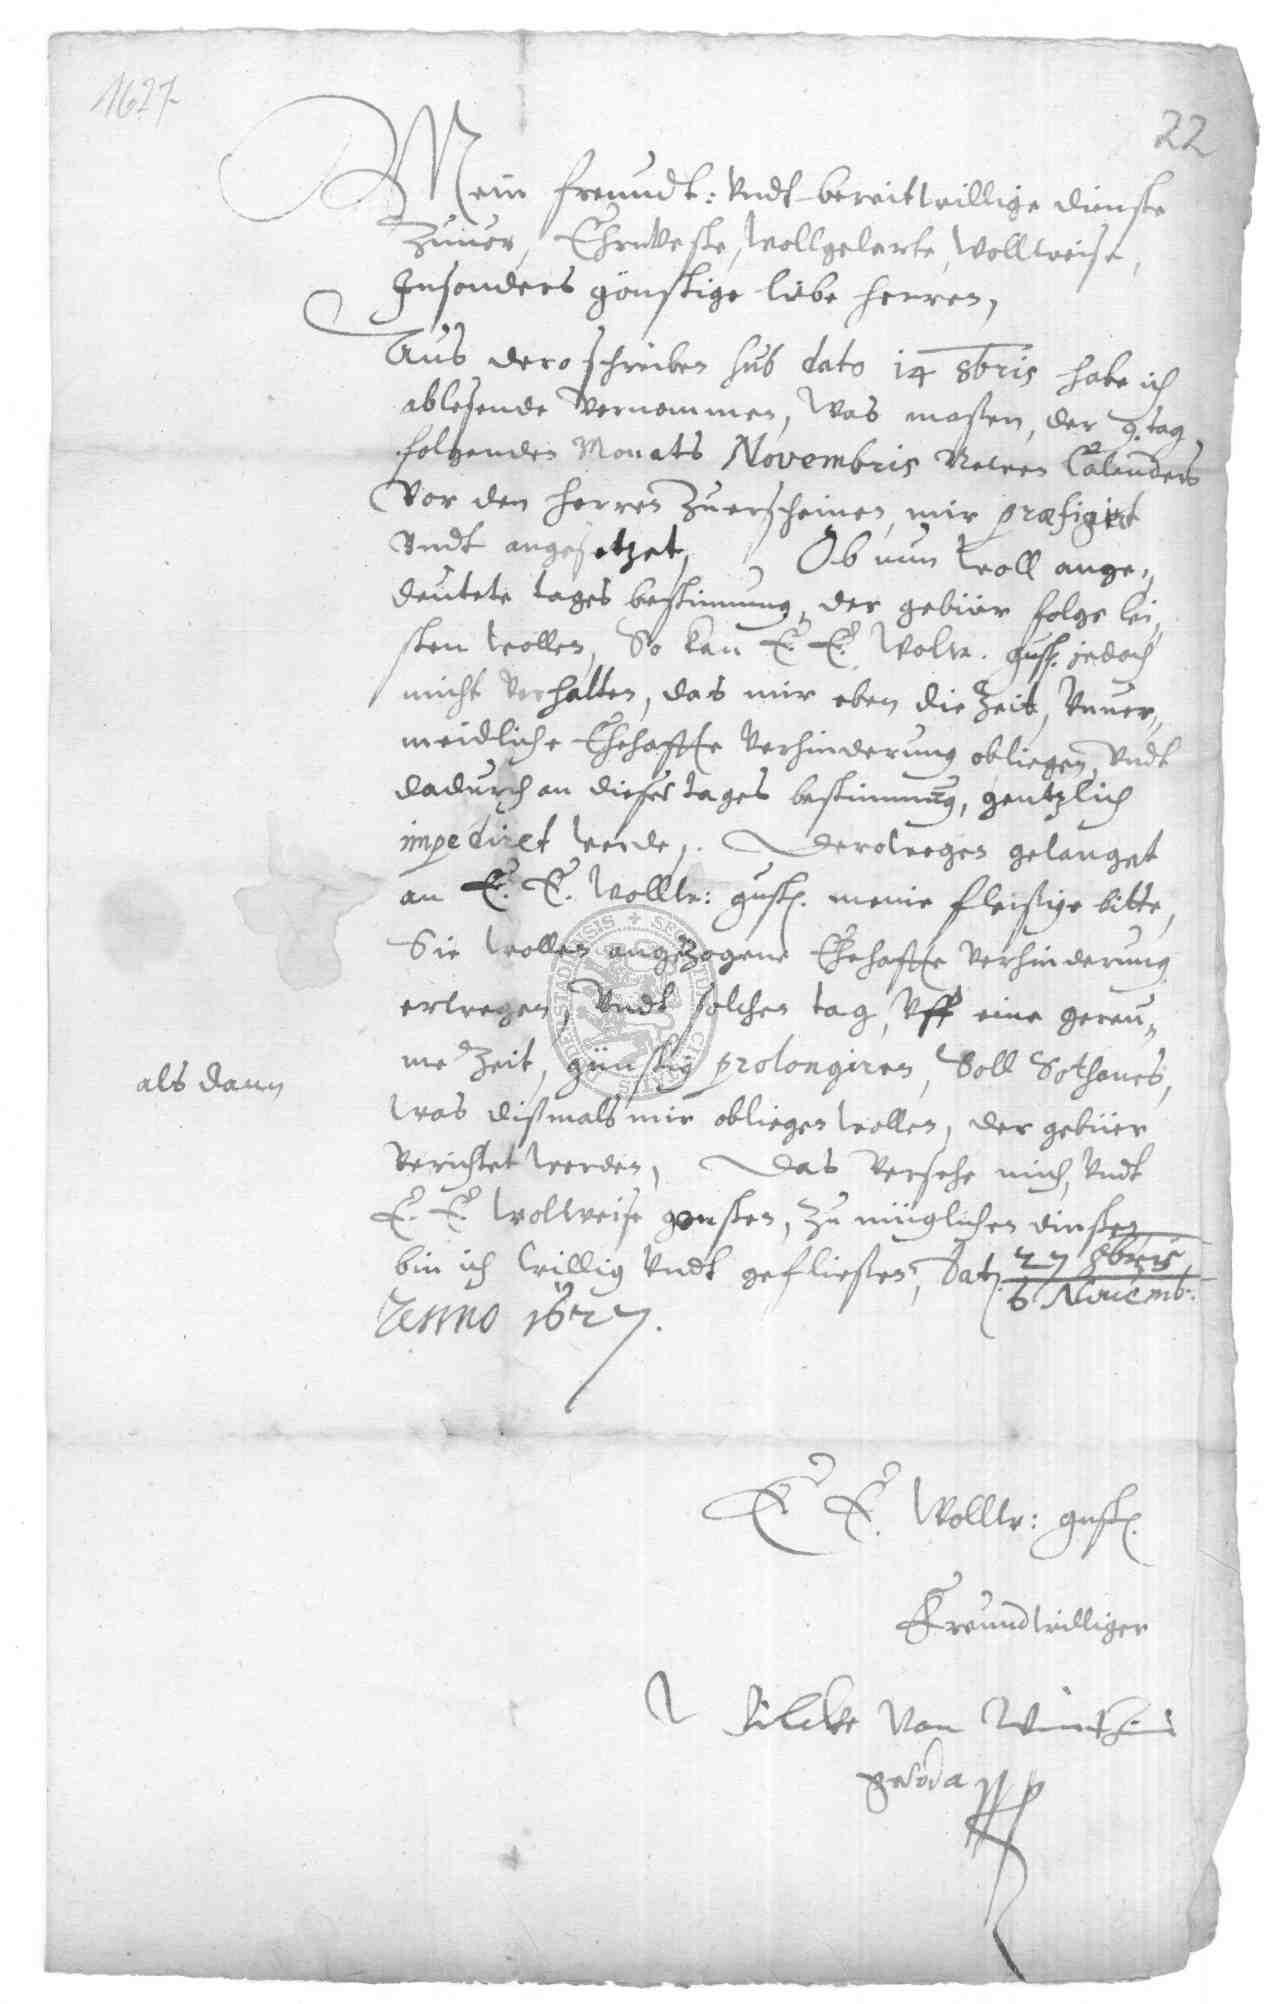 1627
22
Mein freundt: Undt bereitwillige dienste
Zuuor, Ehrnveste, wollgelarte, wollweise,
Insonders gönstige liebe herren,
Aus dero schreiben sub dato 14 8bris habe ich
ablesende vernommen, was maßen, der 9. tag
folgenden Monats Novembris Newen Calenders
Vor den herren Zuerscheinen, mir præfigirt
Undt angesetzet, Ob nun woll ange-
deutete tages bestimmung, der gebüer folge lei-
sten wollen, So kan E. E. Wolw. gust. jedoch
nicht verhalten, das mir eben die Zeit, Vnuer-
meidliche Ehehaffte verhinderung obliegen, Undt
dadurch an dieser tages bestimmung, gentzlich
impediret werde, Derowegen gelanget
an E. E. Wollw: gust. meine fleißige bitte,
Sie wollen angezogene Ehehaffte verhinderung
erwegen, Undt solchen tag, Uff eine gerau-
me Zeit, günstig prolongiren, Soll Sothanes,
als dann
was dißmals mir obliegen wollen, der gebüer
verichtet werden, Das versehe mich, Undt
E. E. wollweise gonsten, Zu müglichen dinsten
bin ich willig Undt gefließen, Dat. 27 8bris
6 Nouemb:
Anno 1627.
E E. Wollw: gust.
Freundtwilliger
von